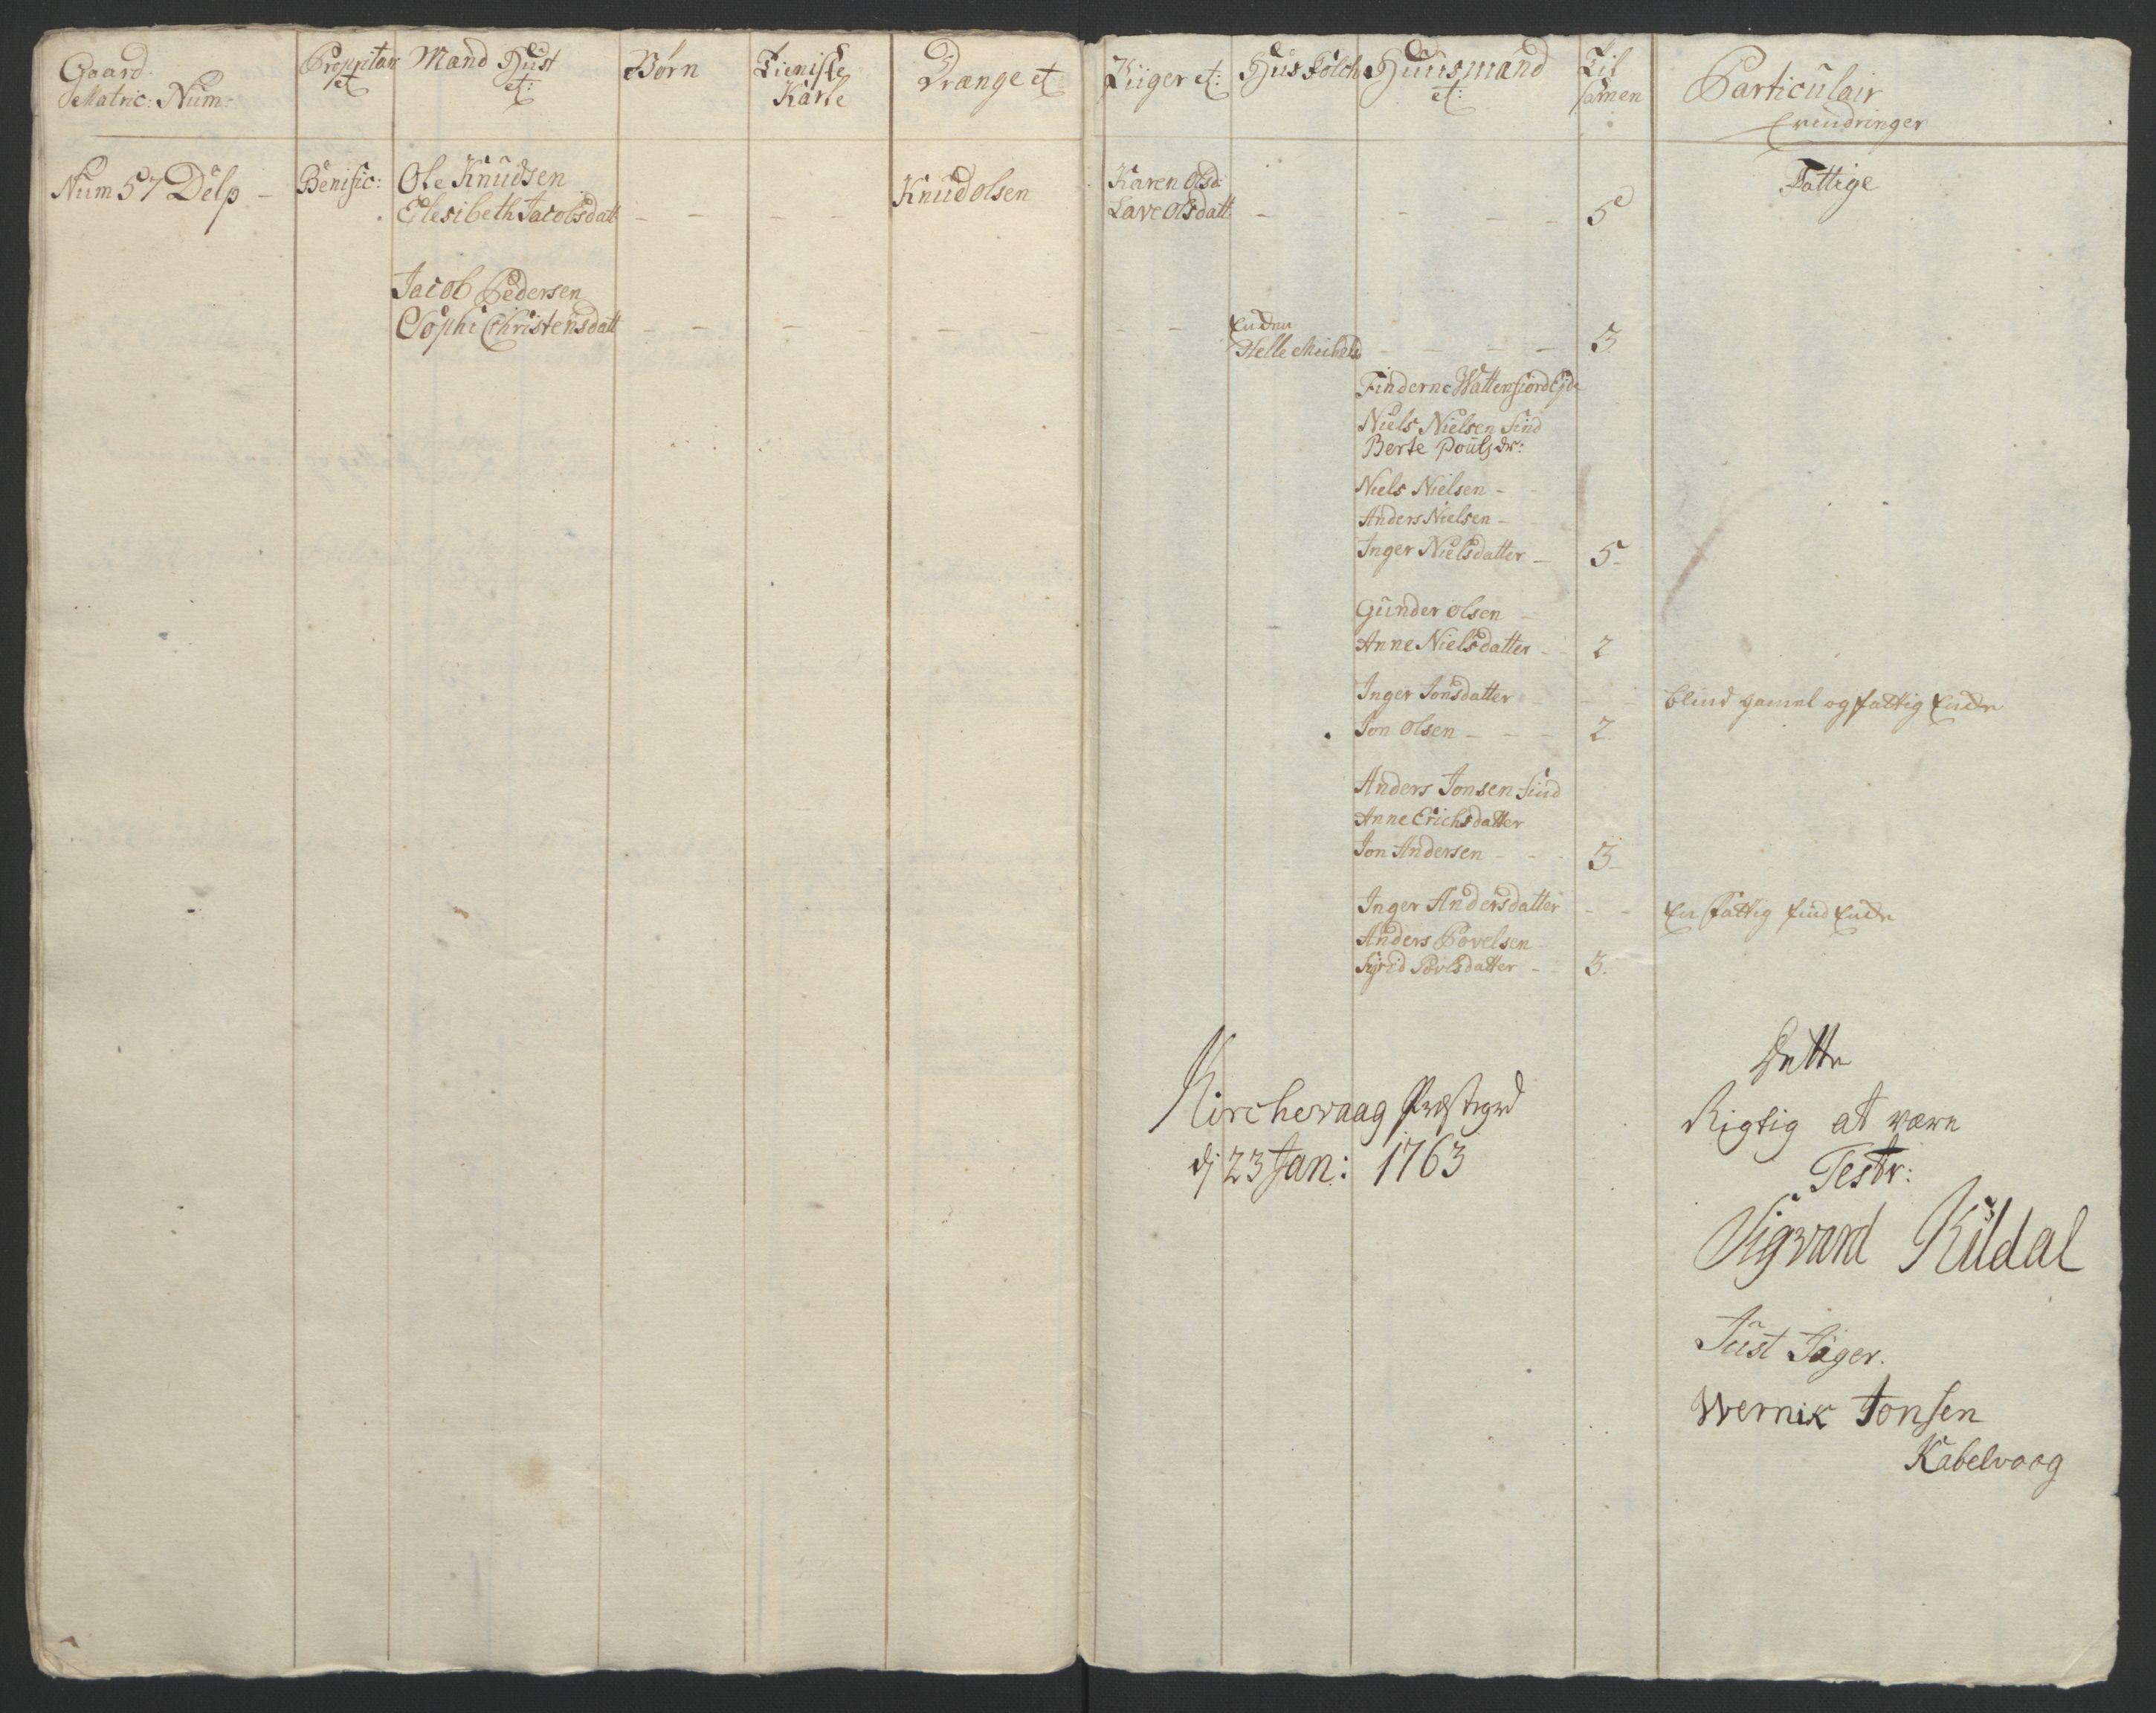 Gaard
Matric: Num:
Propritær
et
Mand Hust
et:
Børn
Tieniste
Karle
Drænge et
Piiger et:
Hus Folch
Huusmænd
et:
Til
samen
Particulair
Erindringer
Num 57 Delp -
Benific:
Ole Knudsen
Elesibeth Jacobsdatt - - - -
Knud olsen
Karen olsd:
Lave olsdatt - - - -
5
Fattige
Jacob Pedersen
Sophi Christensdatt - - - - - - - -
Encken
Helle Michels - - - -
3
Finderne Wattenfiord Ejde
Niels Nielsen Find
Berte Pouls dr:
Niels Nielsen -
Anders Nielsen -
Inger Nielsdatter - 5-
Gunder olsen -
Anne Nielsdatter - 2
Inger Jonsdatter - - - blind gamel og fattig Encke
Jon olsen - - - 2
Anders Jonsen Find
Anne Erichsdatter
Jon Andersen - - - 3-
Inger Andersdatter - - En fattig find Encke
Anders Povelsen -
Sigrid Povlsdatter - - 3.
Kirchevaag Præstegrd
dj 23 Jan: 1763
Dette
Rigtig at være
Testr:
Sigvard Kildal
Just Jäger.
Wernik Jonsen
Kabelvaag